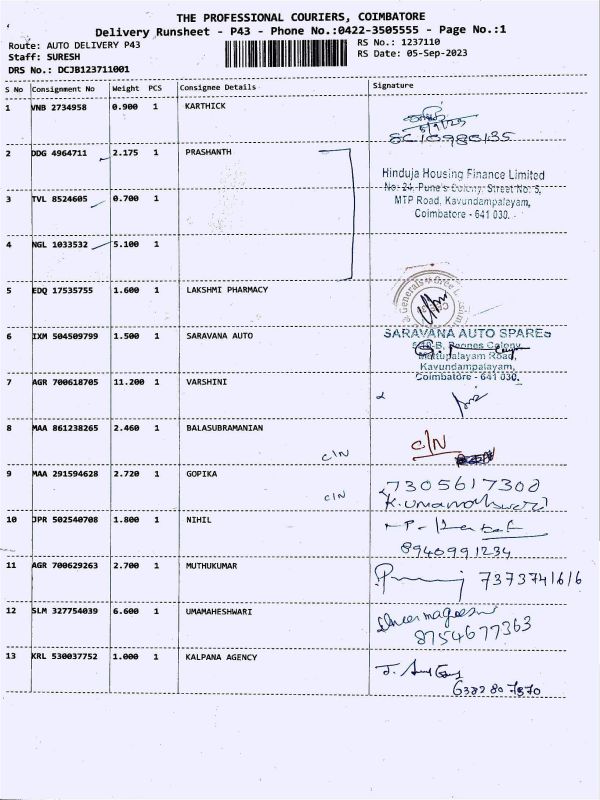 THE PROFESSIONAL COURIERS, COIMBATORE
Delivery Runsheet - P43 - Phone No.:0422-3505555 - Page No.:1
Route: AUTO DELIVERY P43
Staff: SURESH
DRS No.: DCJB123711001
RS No.: 1237110
RS Date: 05-Sep-2023
S No Consignment No Weight PCS Consignee Details Signature
1 VNB 2734958 0.900 1 KARTHICK
2 DDG 4964711 2.175 1 PRASHANTH
Hinduja Housing Finance Limited
No: 24, Pune's Colony, Street No: 5,
3 TVL 8524605 0.700 1
MTP Road, Kavundampalayam,
Coimbatore - 641 030.
4 NGL 1033532 5.100 1
5 EDQ 17535755 1.600 1 LAKSHMI PHARMACY
6 IXM 504509799 1.500 1 SARAVANA AUTO
SARAVANA AUTO SPARES
Colony
Mettupalayam Road,
Kavundampalayam,
Coimbatore - 641 030.
7 AGR 700618705 11.200 1 VARSHINI
8 MAA 861238265 2.460 1 BALASUBRAMANIAN
C/N C/N
9 MAA 291594628 2.720 1 GOPIKA
C/N 7305617308
10 JPR 502540708 1.800 1 NIHIL
8940991234
11 AGR 700629263 2.700 1 MUTHUKUMAR
7373741616
12 SLM 327754039 6.600 1 UMAMAHESHWARI
8754677363
13 KRL 530037752 1.000 1 KALPANA AGENCY